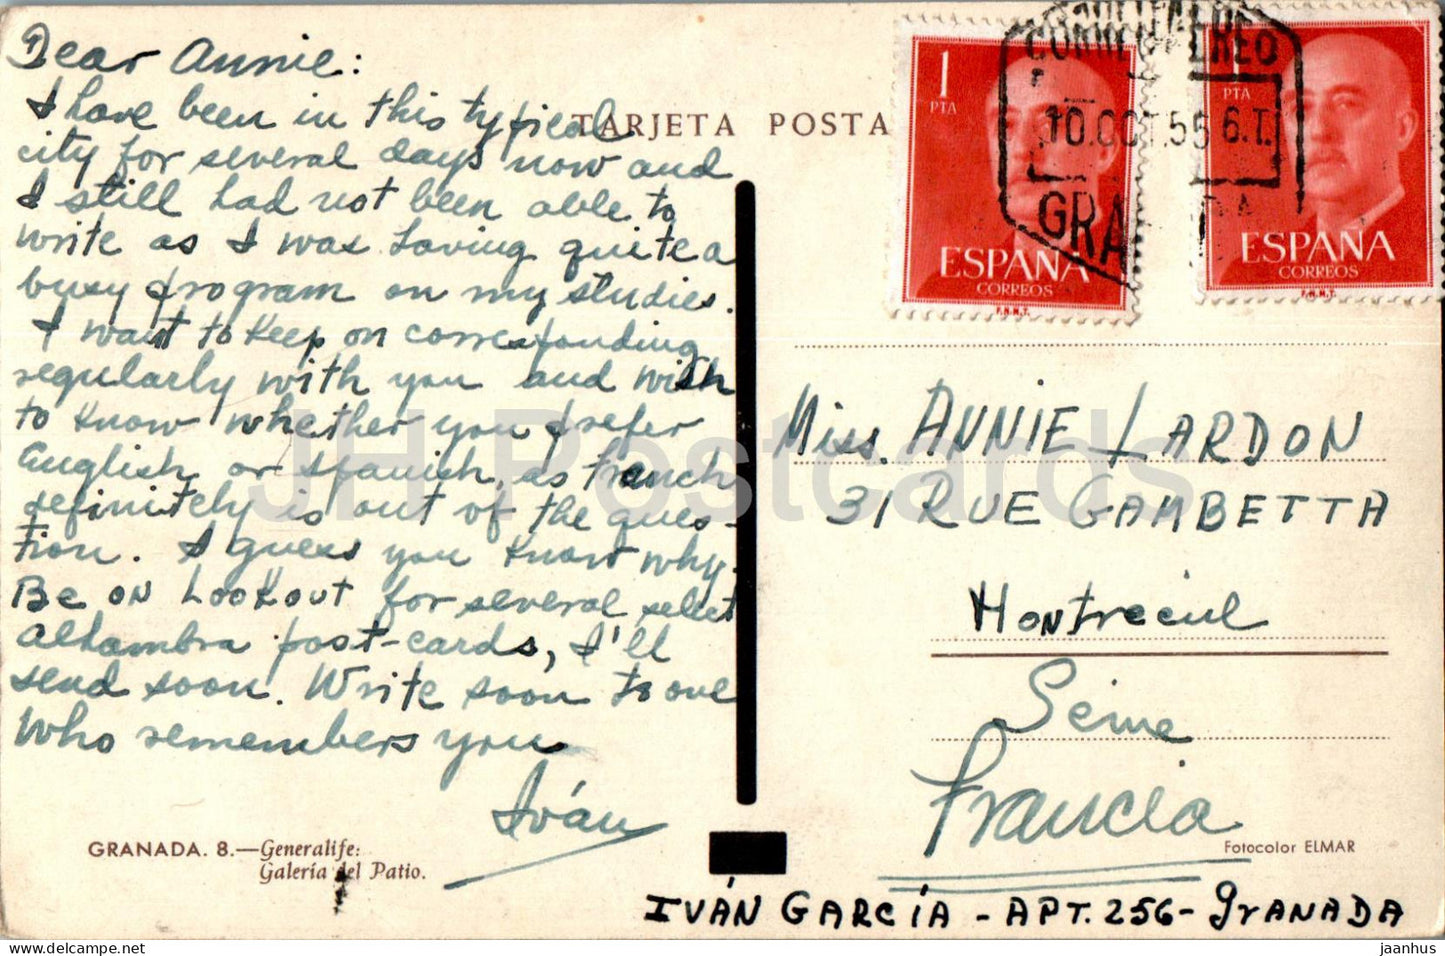 Dear Annie:
I have been in this typical
city for several days now and
I still had not been able to
write as I was having quite a
busy program on my studies.
I want to keep on corresponding
regularly with you and wish
to know whether you prefer
English or Spanish, as French
definitely is out of the ques-
tion. I guess you know why.
Be on Lookout for several select
alhambra post-cards, I'll
send soon. Write soon to one
who remembers you
Iván
GRANADA. 8.—Generalife:
Galería del Patio.
TARJETA POSTA
1
PTA
ESPAÑA
CORREOS
F.N.M.T.
1
PTA
ESPAÑA
CORREOS
F.N.M.T.
10.OCT.55 6.T.
Miss. ANNIE LARDON
31 RUE GAMBETTA
Montreuil
Seine
Francia
Fotocolor ELMAR
IVÁN GARCÍA - APT. 256 - GRANADA
JH Postcards
jaanhus